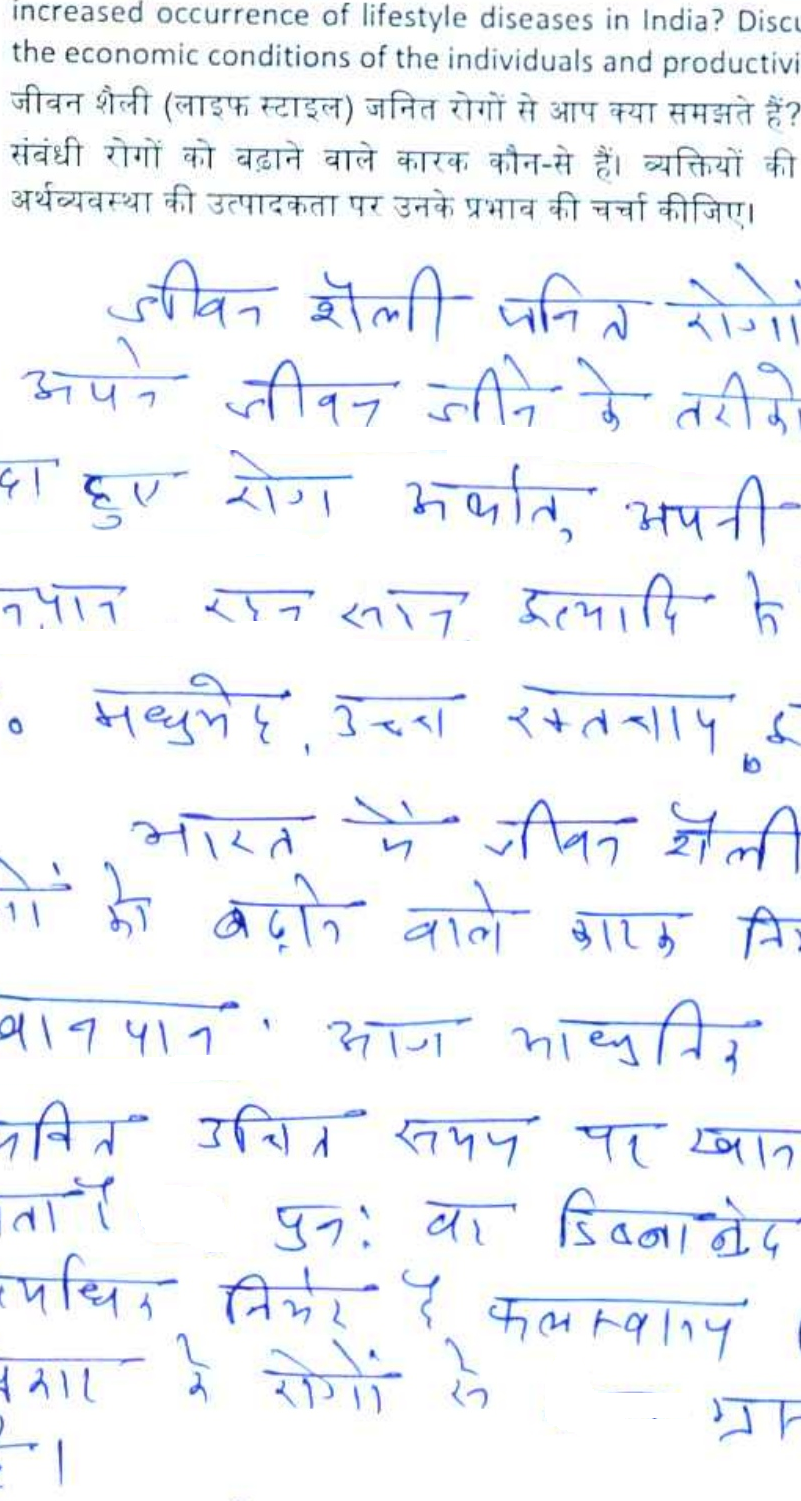 increased occurrence of lifestyle diseases in India? Discu
the economic conditions of the individuals and productivi
जीवन शैली (लाइफ स्टाइल) जनित रोगों से आप क्या समझते हैं?
संबंधी रोगों को बढ़ाने वाले कारक कौन-से हैं। व्यक्तियों की
अर्थव्यवस्था की उत्पादकता पर उनके प्रभाव की चर्चा कीजिए।
जीवन शैली जनित रोगों
अपने जीवन जीने के तरीको
दा हुए रोग अर्थात् अपनी
नपान रहन सहन इत्यादि के
मधुमेह, उच्च रक्तचाप,
भारत में जीवन शैली
गों को बढ़ाने वाले कारक
खानपान : आज आधुनिक
उचित समय पर खान
पुनः वह डिब्बा बंद
निर्भर है
के रोगों से
है।